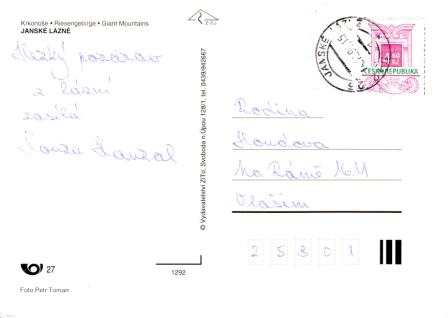 Krkonoše • Riesengebirge • Giant Mountains
JANSKÉ LÁZNĚ
Hezký pozdrav
z lázní
zasílá
Honza
© Vydavatelství ZiTo, Svoboda n.Úpou 128/1, tel. 0439/942667
JANSKÉ
ČESKÁ REPUBLIKA
Rodina
Houdova
Na
Vlašim
25801
27
1292
Foto Petr Toman